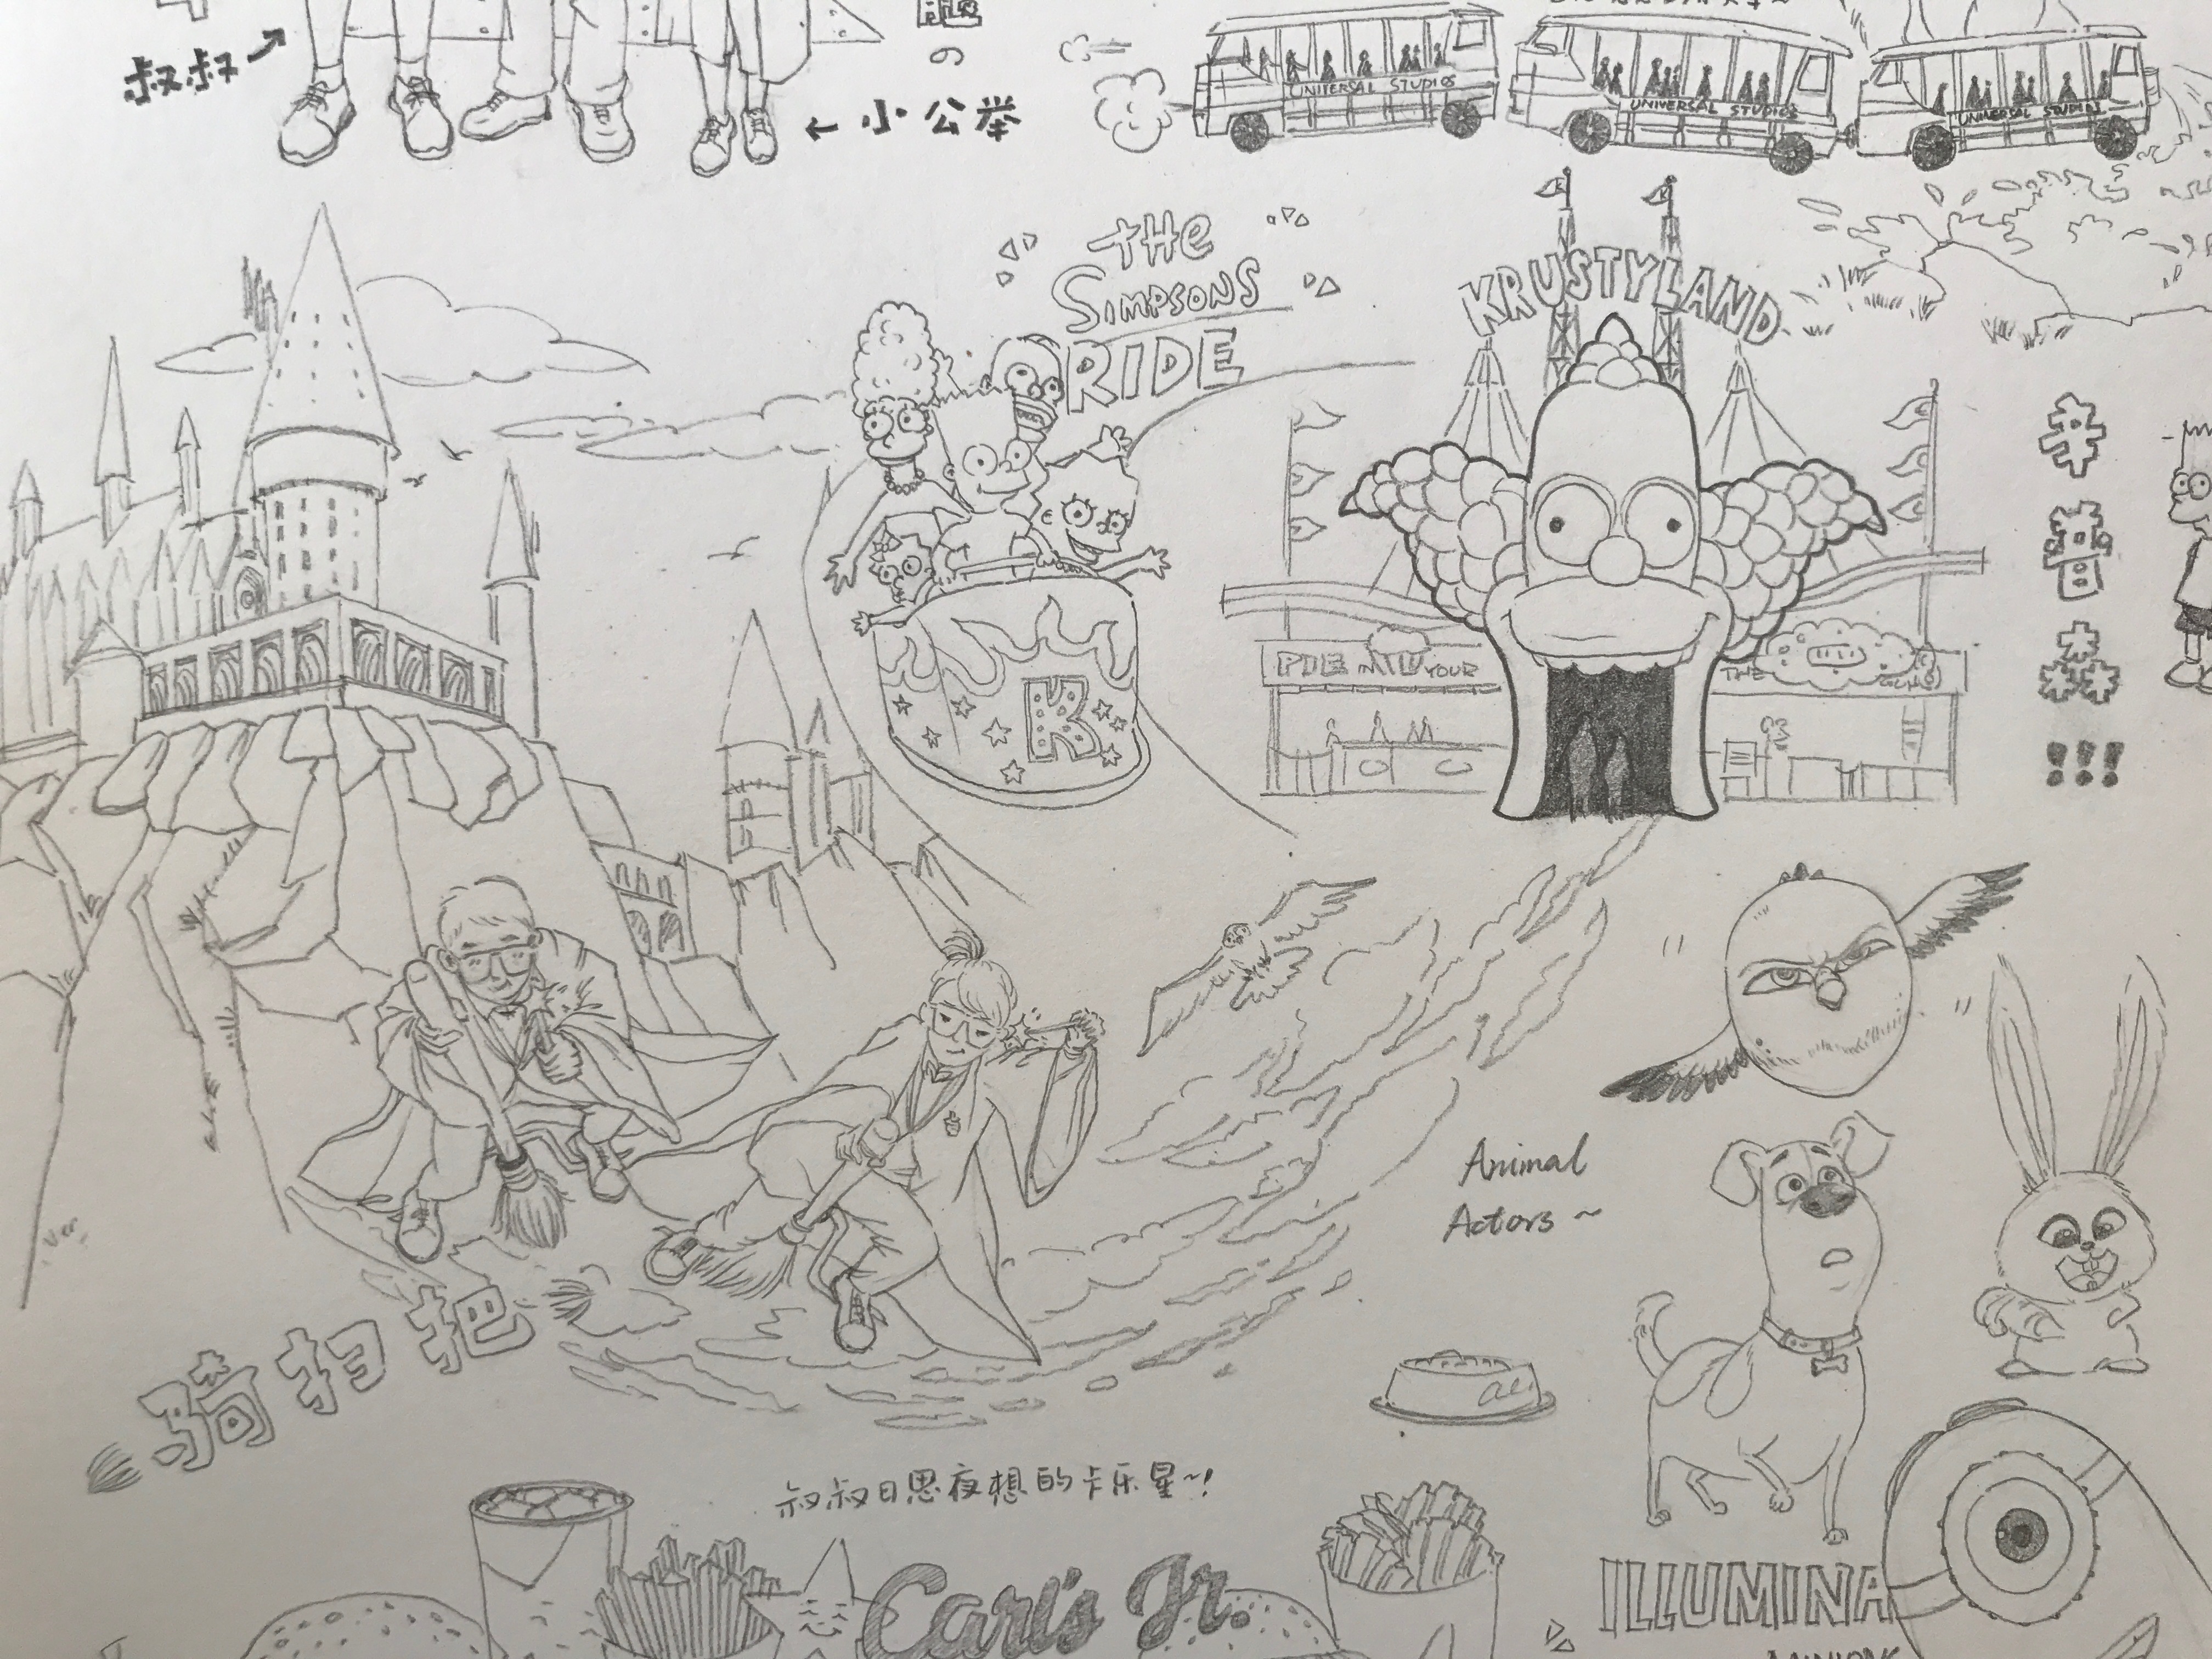 叔叔
の
← 小公举
UNIVERSAL STUDIOS
UNIVERSAL STUDIOS
UNIVERSAL STUDIOS
THE
SIMPSONS
RIDE
KRUSTYLAND
K
PIE IN YOUR
THE
!!!
Animal
Actors ~
骑扫把
叔叔日思夜想的卡乐星~!
Carl's Jr.
ILLUMINA